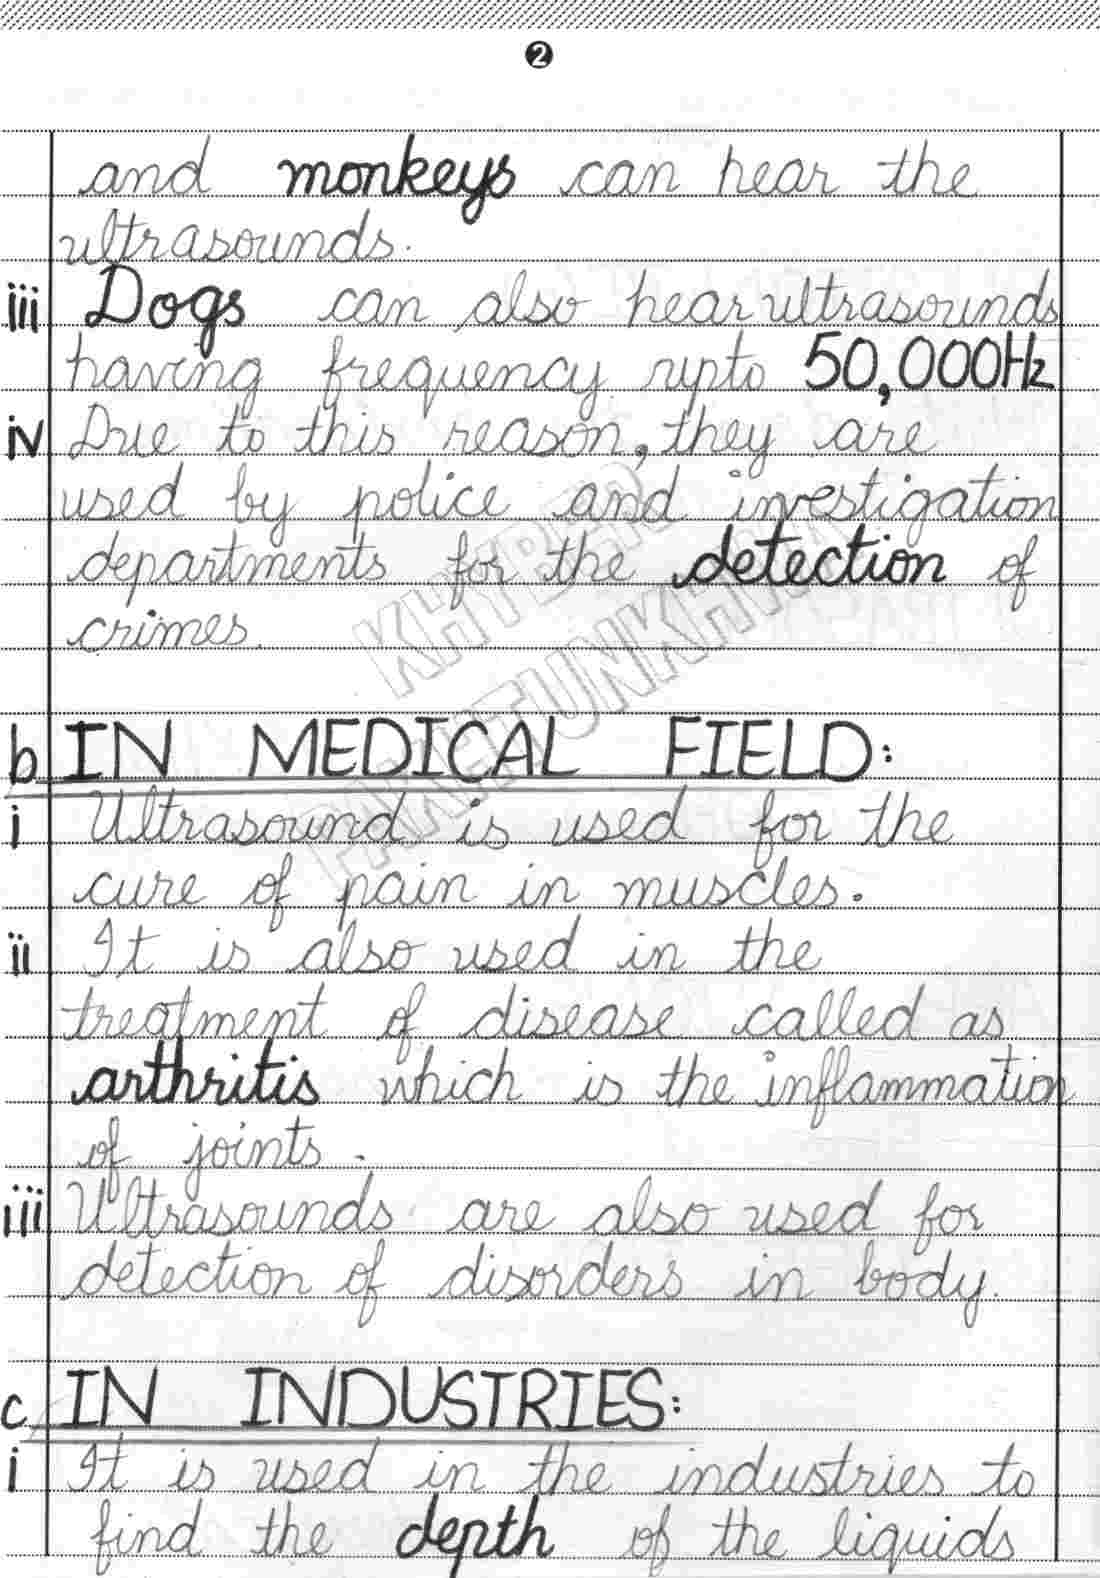 2
and monkeys can hear the
ultrasounds.
iii Dogs can also hear ultrasounds
having frequency upto 50,000Hz
iv Due to this reason, they are
used by police and investigation
departments for the detection of
crimes.
KHYBER
PAKHTUNKHWA
b IN MEDICAL FIELD:
i Ultrasound is used for the
cure of pain in muscles.
ii It is also used in the
treatment of disease called as
arthritis which is the inflammation
of joints.
iii Ultrasounds are also used for
detection of disorders in body.
c IN INDUSTRIES:
i It is used in the industries to
find the depth of the liquids